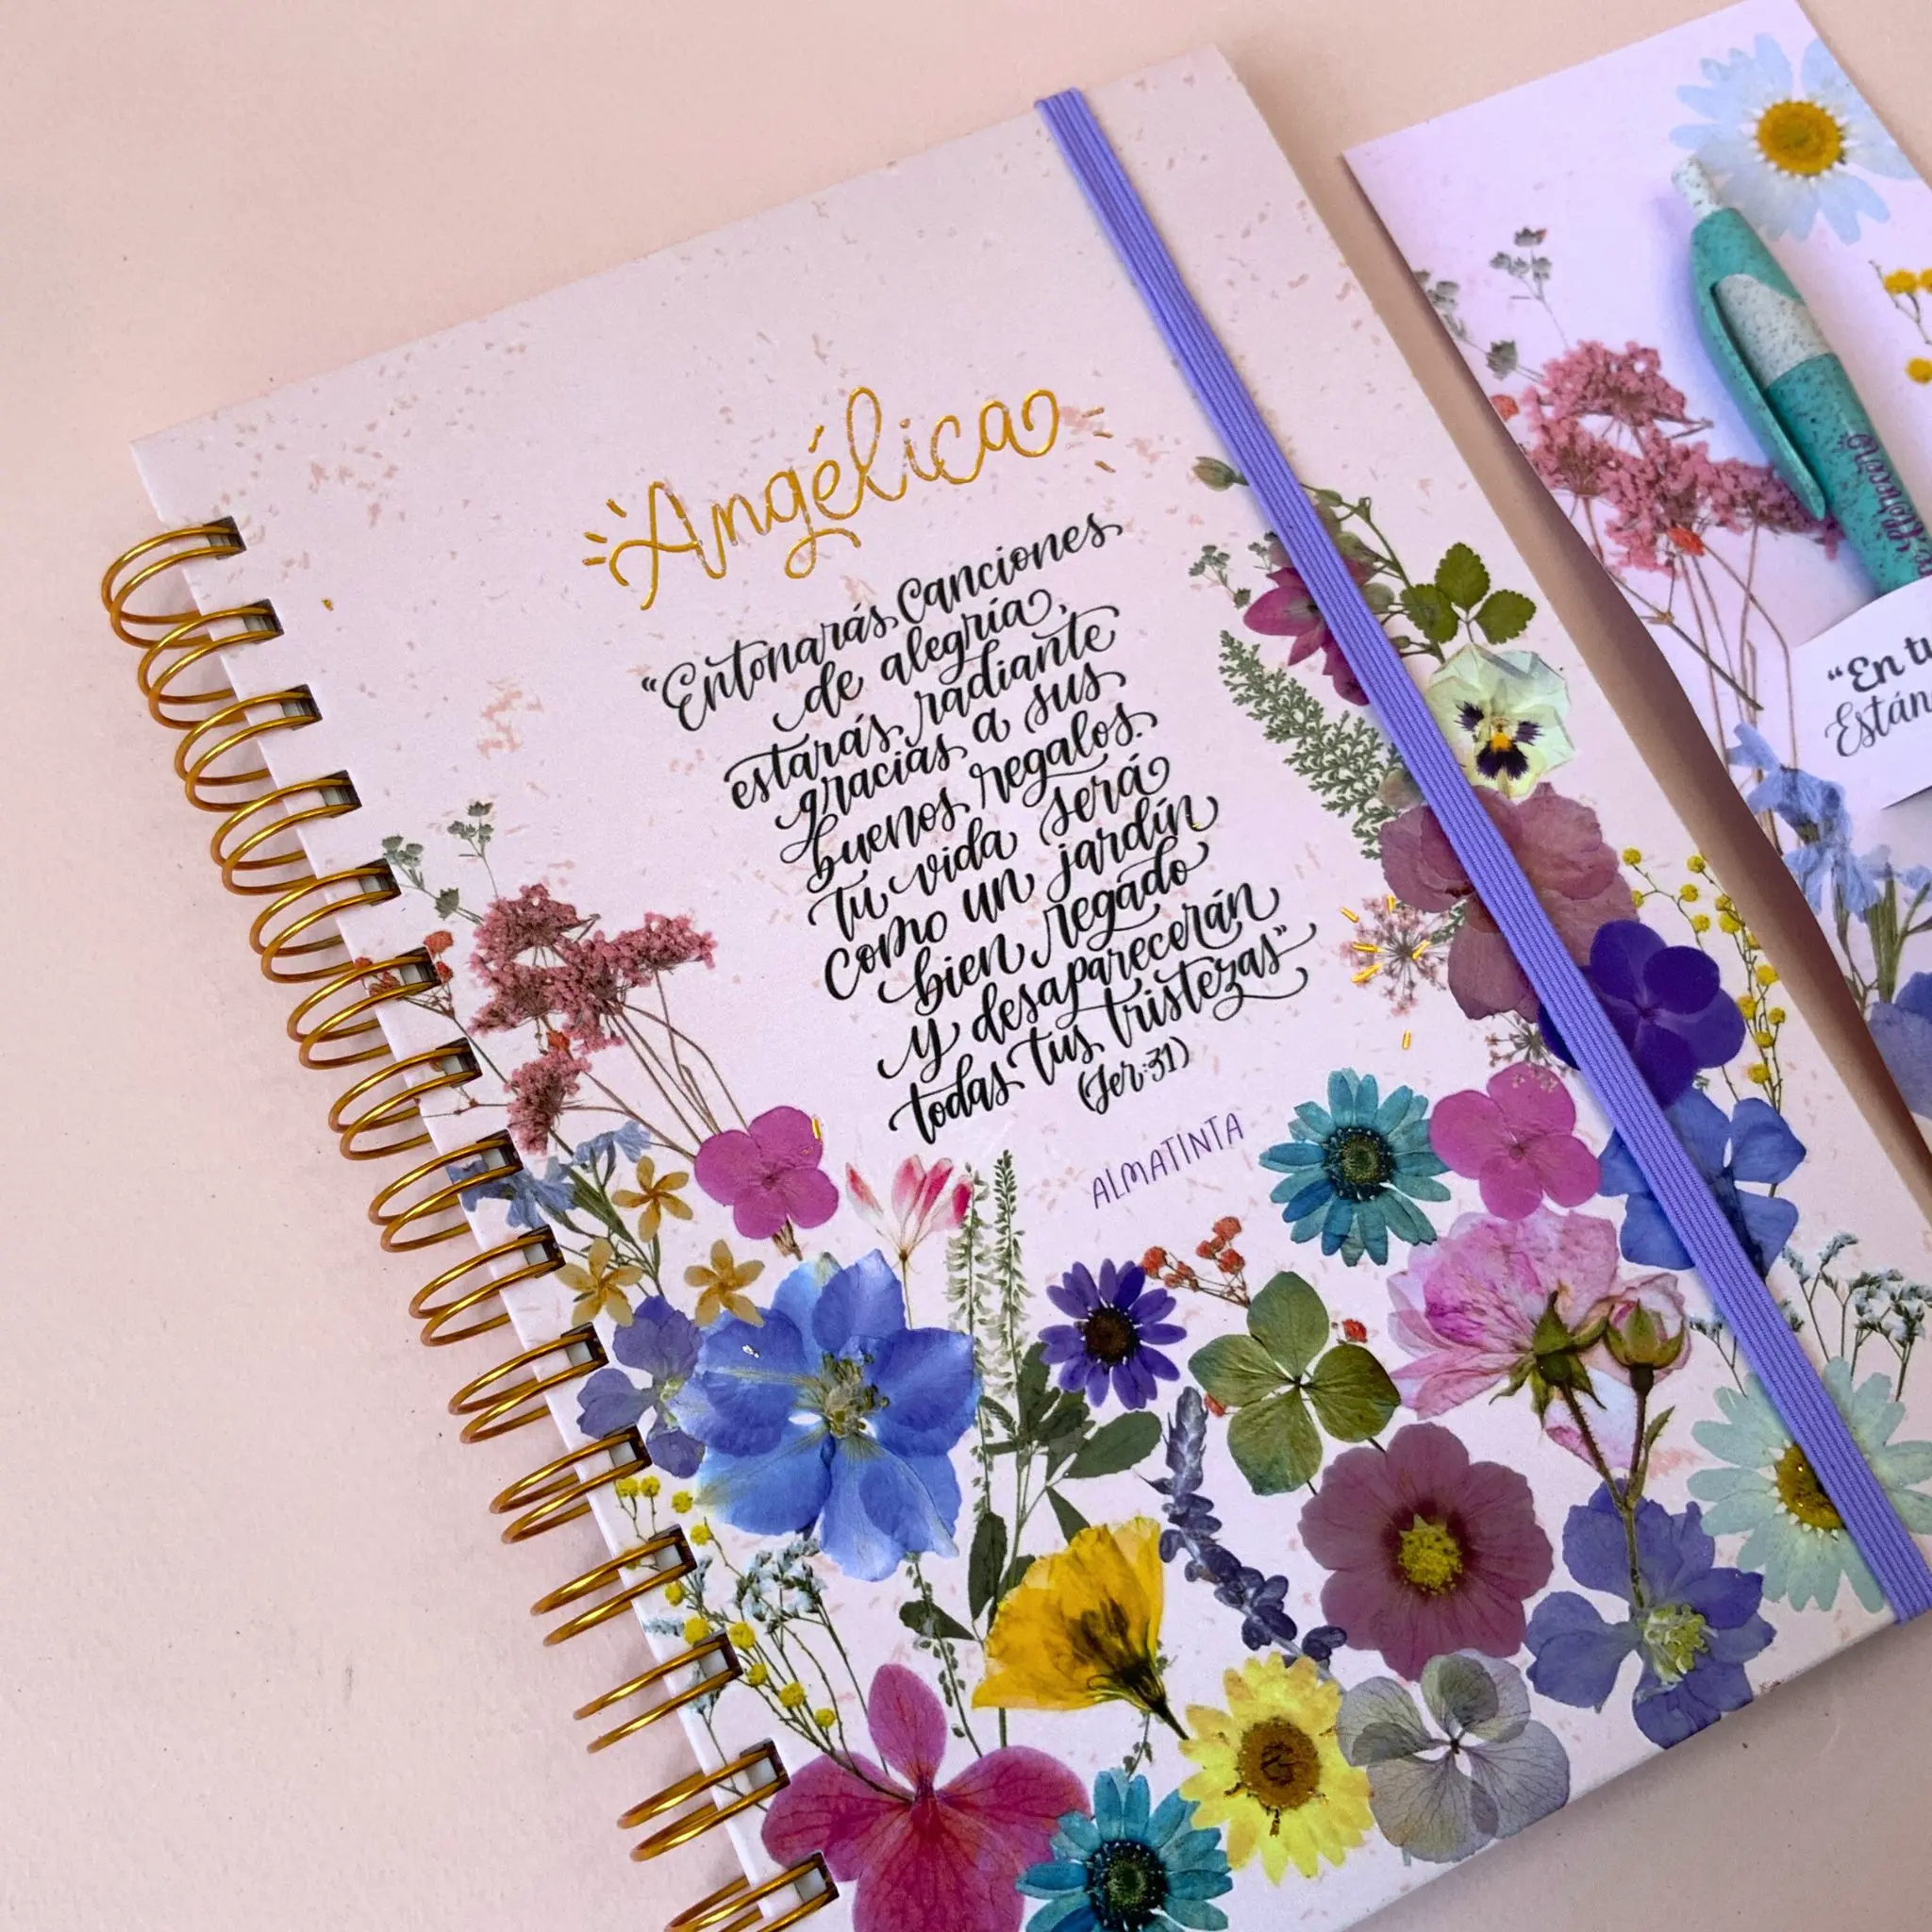 Angélica
“Entonarás canciones
de alegría,
estarás radiante
gracias a sus
buenos regalos.
tu vida será
como un jardín
bien regado
y desaparecerán
todas tus tristezas”
(Jer:31)
ALMATINTA
“En tu
Están